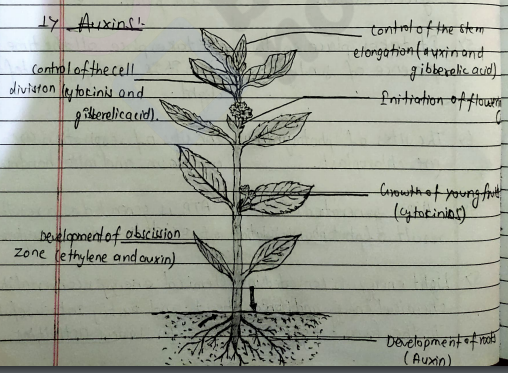 1) Auxins:-
Control of the stem
elongation (auxin and
gibberelic acid)
Control of the cell
division (cytokinis and
gibberelic acid).
Initiation of flowers
(
Growth of young fruits
(cytokinins)
Development of abscission
zone (ethylene and auxin)
Development of roots
(Auxin)